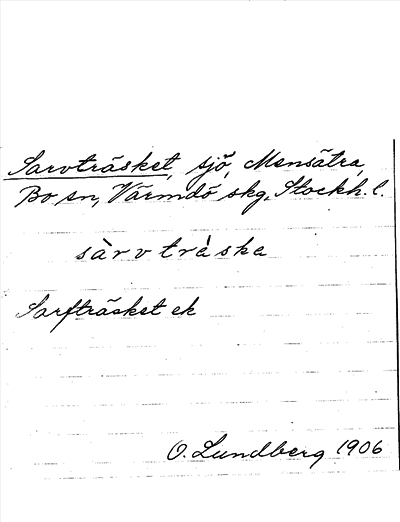 Sarvträsket, sjö, Mensätra,
Bo sn, Värmdö skg, Stockh. l.
sàrvtrȧ̀ska
Sarfträsket ek
O. Lundberg 1906